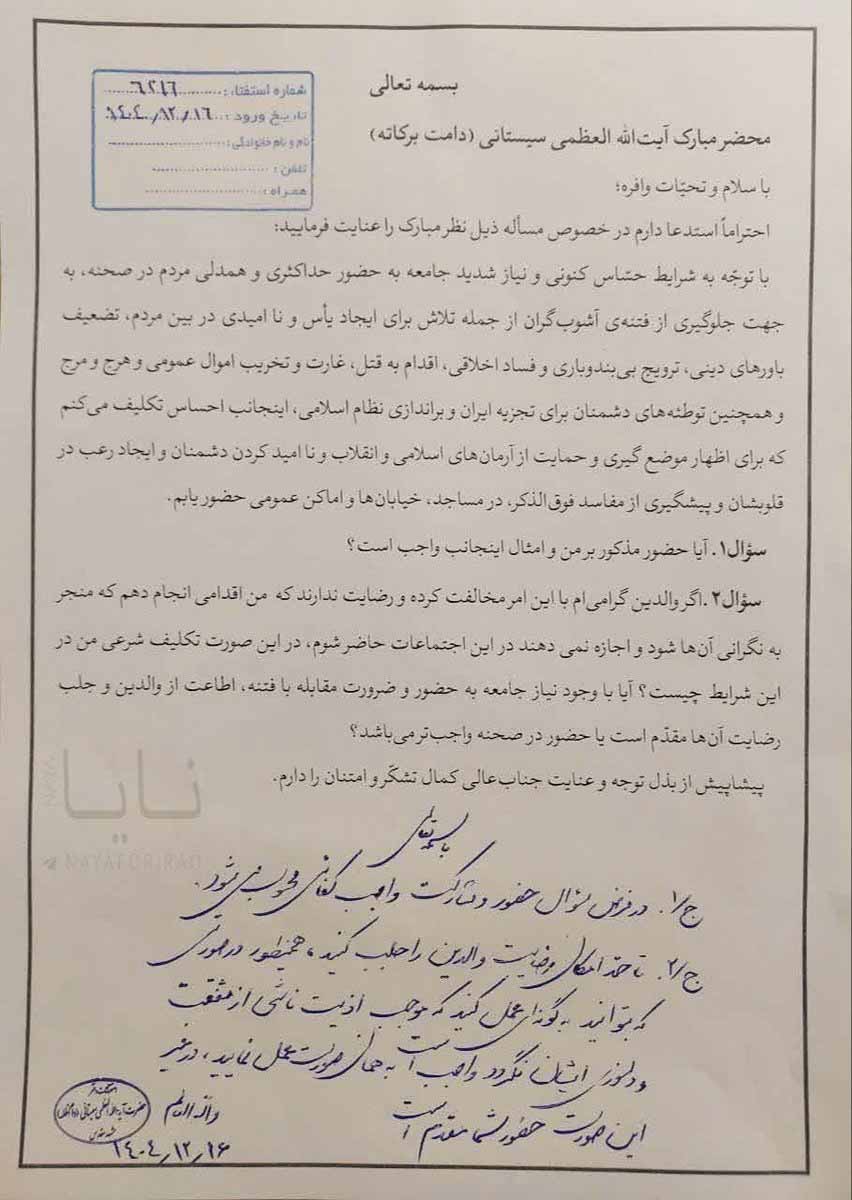 بسمه تعالی
شماره استفتاء: ۶۲۱۶
تاریخ ورود: ۱۴۰۴/۱۲/۱۶
نام و نام خانوادگی:
تلفن:
همراه:
محضر مبارک آیت‌الله العظمی سیستانی (دامت برکاته)
با سلام و تحیّات وافره؛
احتراماً استدعا دارم در خصوص مسأله ذیل نظر مبارک را عنایت فرمایید:
با توجّه به شرایط حسّاس کنونی و نیاز شدید جامعه به حضور حداکثری و همدلی مردم در صحنه، به
جهت جلوگیری از فتنه‌ی آشوب‌گران از جمله تلاش برای ایجاد یأس و نا امیدی در بین مردم، تضعیف
باورهای دینی، ترویج بی‌بندوباری و فساد اخلاقی، اقدام به قتل، غارت و تخریب اموال عمومی و هرج و مرج
و همچنین توطئه‌های دشمنان برای تجزیه ایران و براندازی نظام اسلامی، اینجانب احساس تکلیف می‌کنم
که برای اظهار موضع گیری و حمایت از آرمان‌های اسلامی و انقلاب و نا امید کردن دشمنان و ایجاد رعب در
قلوبشان و پیشگیری از مفاسد فوق‌الذکر، در مساجد، خیابان‌ها و اماکن عمومی حضور یابم.
سؤال۱. آیا حضور مذکور بر من و امثال اینجانب واجب است؟
سؤال۲. اگر والدین گرامی‌ام با این امر مخالفت کرده و رضایت ندارند که من اقدامی انجام دهم که منجر
به نگرانی آن‌ها شود و اجازه نمی دهند در این اجتماعات حاضر شوم، در این صورت تکلیف شرعی من در
این شرایط چیست؟ آیا با وجود نیاز جامعه به حضور و ضرورت مقابله با فتنه، اطاعت از والدین و جلب
رضایت آن‌ها مقدّم است یا حضور در صحنه واجب‌تر می‌باشد؟
پیشاپیش از بذل توجه و عنایت جناب‌عالی کمال تشکّر و امتنان را دارم.
نایا
NAYA
NAYAFORIRAQ
باسمه تعالی
ج/۱. در فرض سؤال حضور و مشارکت واجب کفائی محسوب می‌شود.
ج/۲. تا حدّ امکان رضایت والدین را جلب کنید، همینطور در صورتی
که بتوانید به گونه‌ای عمل کنید که موجب اذیت ناشی از شفقت
و دلسوزی ایشان نگردد واجب است به همان صورت عمل نمایید، در غیر
این صورت حضور شما مقدم است
والله العالم
استفتاء دفتر
حضرت آیة الله العظمی سیستانی
۱۴۰۴/۱۲/۱۶